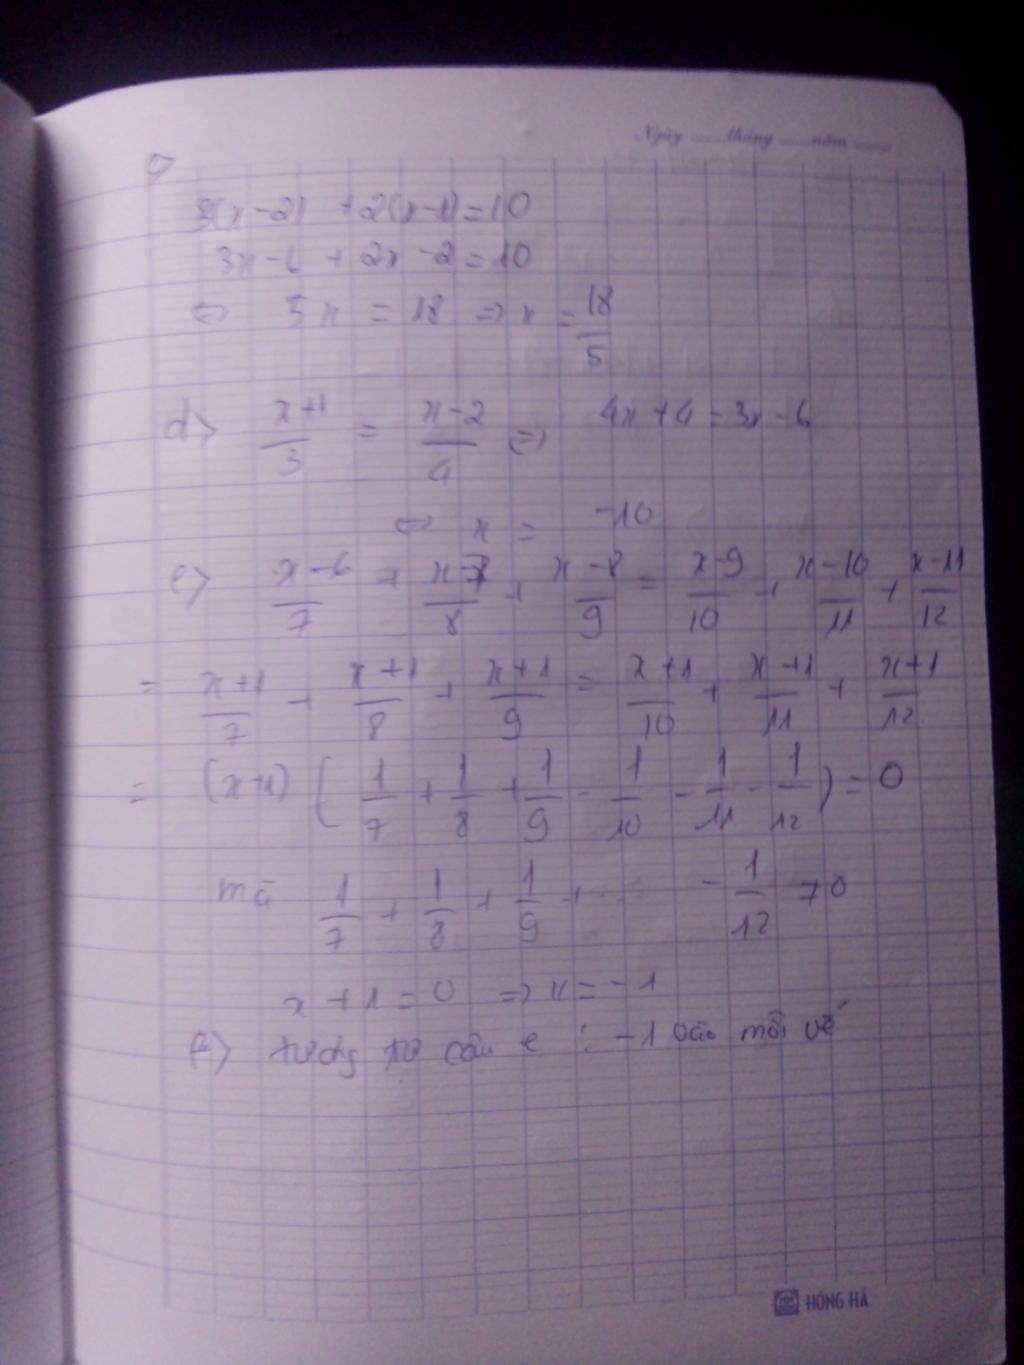 Ngày ...... tháng ...... năm ......
c>
3(x-2) + 2(x-1) = 10
3x - 6 + 2x - 2 = 10
<=> 5x = 18 => x = 18/5
d> (x+1)/3 = (x-2)/4 => 4x + 4 = 3x - 6
<=> x = -10
e> (x-6)/7 + (x-7)/8 + (x-8)/9 = (x-9)/10 + (x-10)/11 + (x-11)/12
= (x+1)/7 + (x+1)/8 + (x+1)/9 = (x+1)/10 + (x+1)/11 + (x+1)/12
= (x+1) (1/7 + 1/8 + 1/9 - 1/10 - 1/11 - 1/12) = 0
mà 1/7 + 1/8 + 1/9 + ...... - 1/12 ≠ 0
x + 1 = 0 => x = -1
f) tương tự câu e : -1 vào mỗi vế
HỒNG HÀ